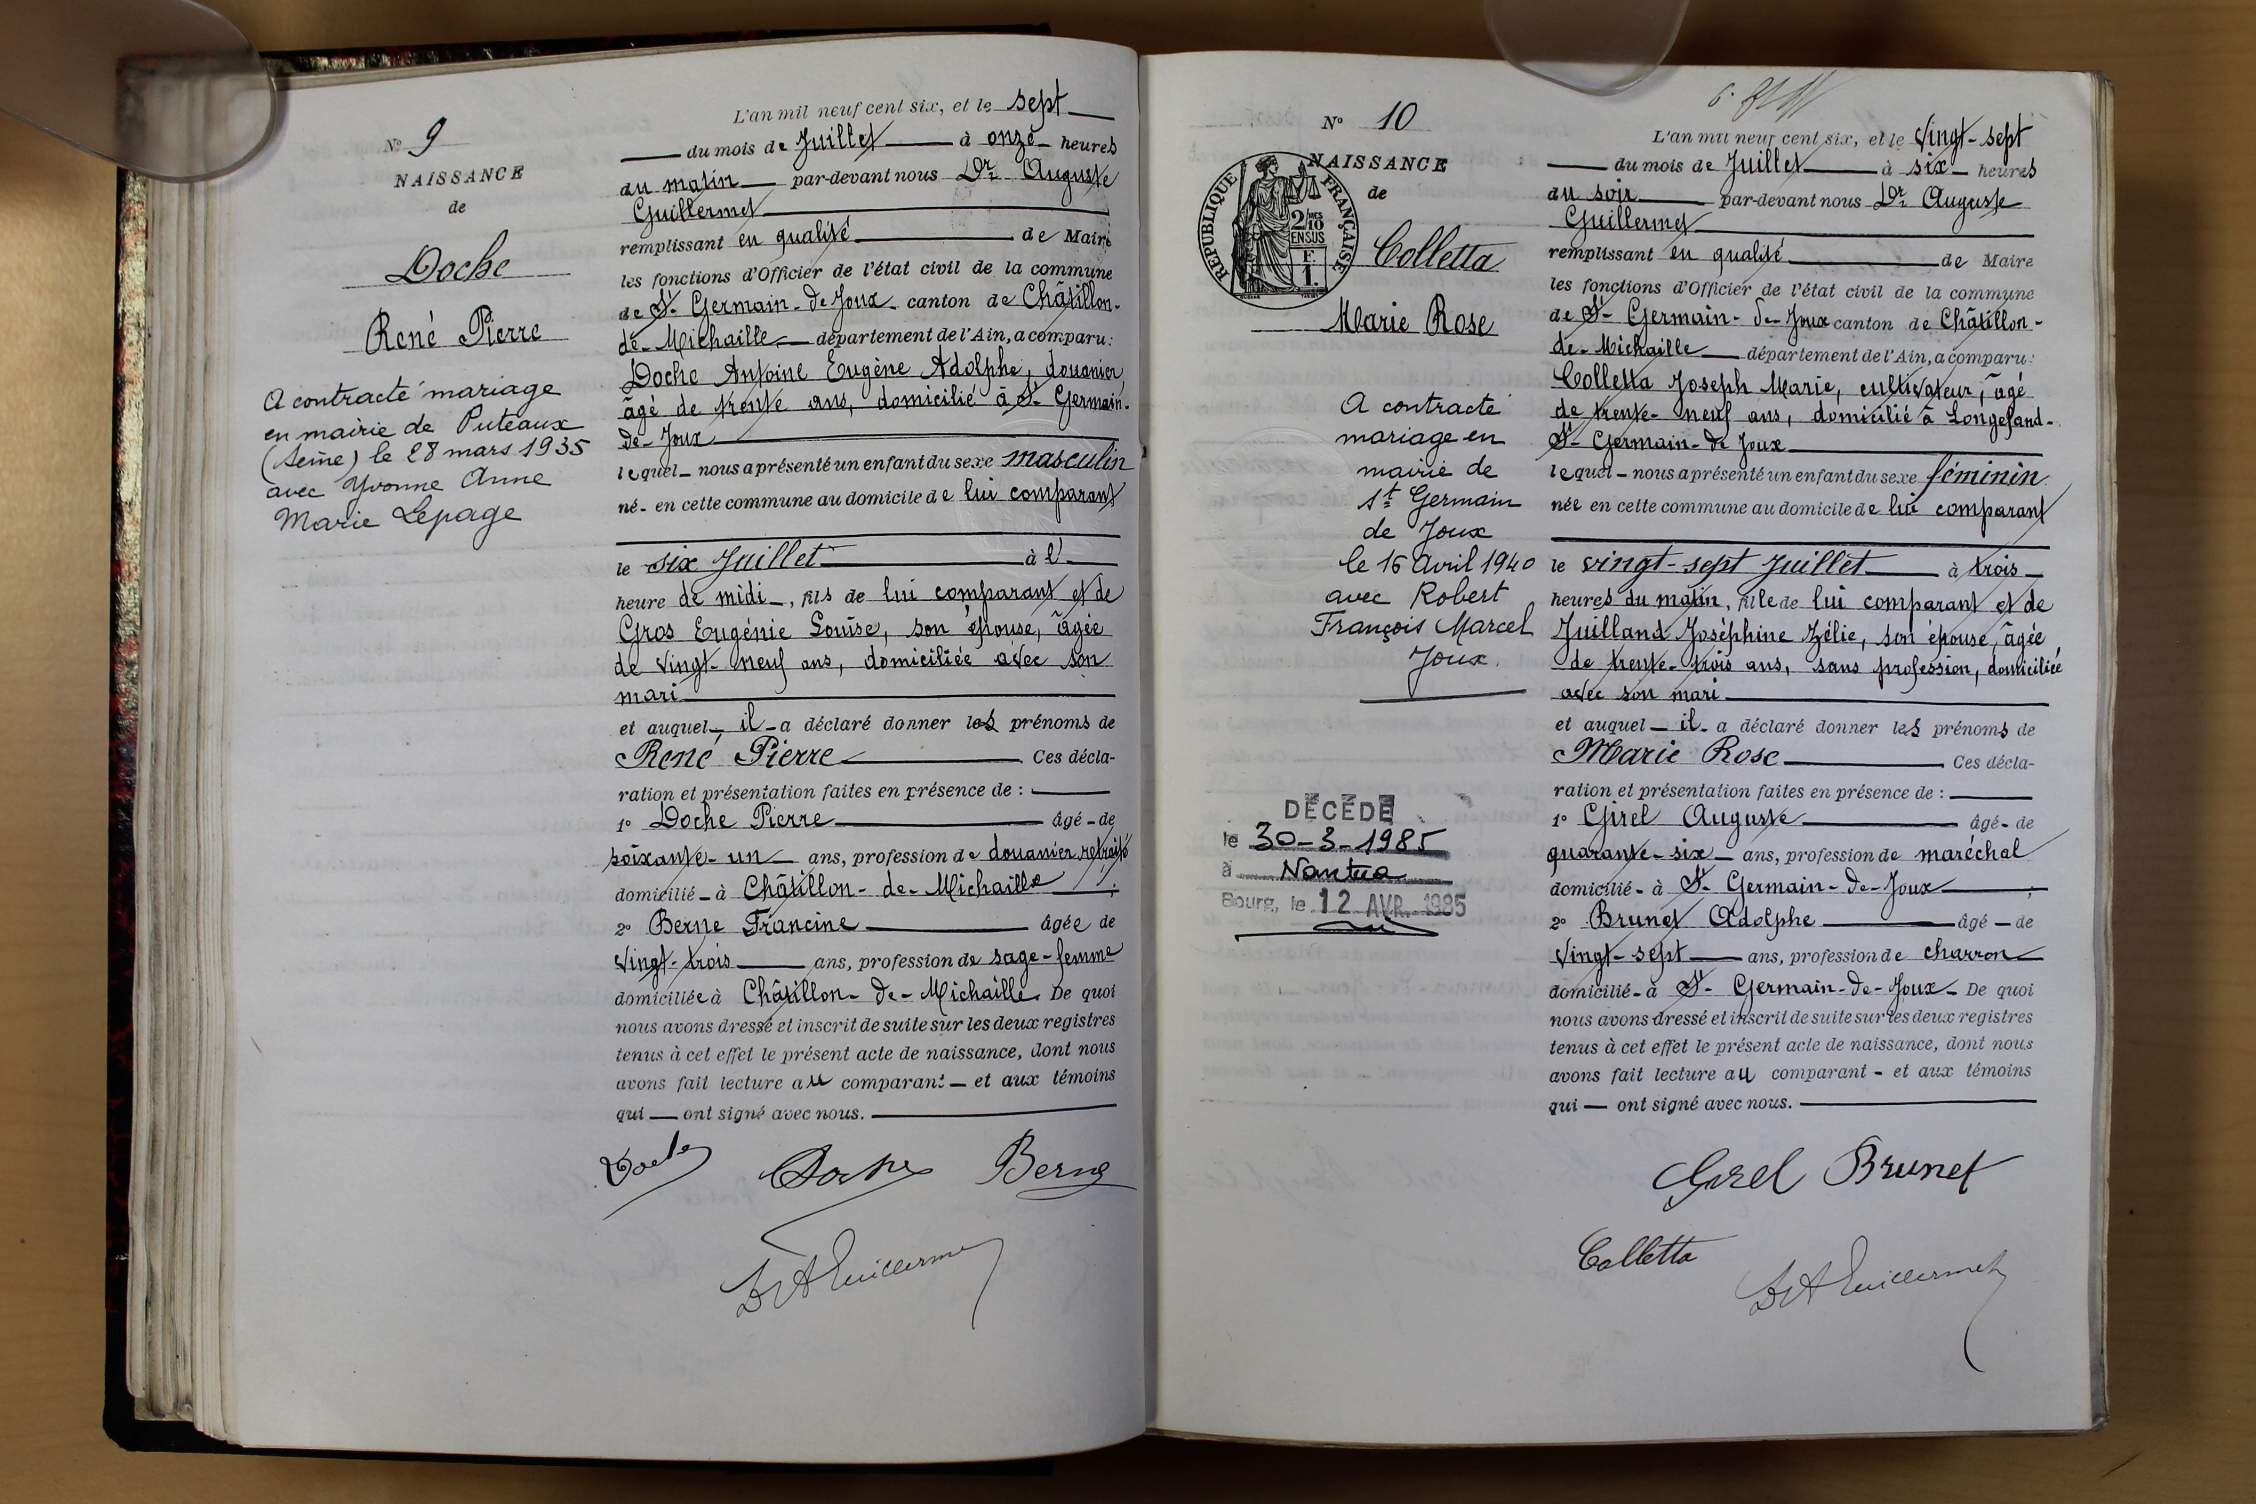 N° 9
NAISSANCE
de
Doche
René Pierre
A contracté mariage
en mairie de Puteaux
(Seine) le 28 mars 1935
avec Yvonne Anne
Marie Lepage
L'an mil neuf cent six, et le sept
du mois de Juillet à onze heures
du matin par-devant nous Dr. Auguste
Guillermet
remplissant en qualité de Maire
les fonctions d'Officier de l'état civil de la commune
de St-Germain-de-Joux canton de Châtillon-
de-Michaille département de l'Ain, a comparu:
Doche Antoine Eugène Adolphe, douanier,
âgé de trente ans, domicilié à St-Germain-
de-Joux
lequel nous a présenté un enfant du sexe masculin
né en cette commune au domicile de lui comparant
le six Juillet à l'
heure de midi, fils de lui comparant et de
Gros Eugénie Louise, son épouse, âgée
de vingt-neuf ans, domiciliée avec son
mari
et auquel il a déclaré donner les prénoms de
René Pierre Ces décla-
ration et présentation faites en présence de :
1° Doche Pierre âgé de
soixante-un ans, profession de douanier retraité
domicilié à Châtillon-de-Michaille ;
2° Berne Francine âgée de
vingt-trois ans, profession de sage-femme
domiciliée à Châtillon-de-Michaille. De quoi
nous avons dressé et inscrit de suite sur les deux registres
tenus à cet effet le présent acte de naissance, dont nous
avons fait lecture au comparant et aux témoins
qui ont signé avec nous.
Doche Doche Berne
Dr A Guillermet
N° 10
NAISSANCE
de
RÉPUBLIQUE FRANÇAISE
2/10 MES
EN SUS
F.
1.
Colletta
Marie Rose
A contracté
mariage en
mairie de
St Germain
de Joux
le 16 avril 1940
avec Robert
François Marcel
Joux.
DÉCÉDÉ
le 30-3-1985
à Nantua
Bourg, le 12 AVR. 1985
L'an mil neuf cent six, et le vingt-sept
du mois de Juillet à six heures
du soir par-devant nous Dr. Auguste
Guillermet
remplissant en qualité de Maire
les fonctions d'Officier de l'état civil de la commune
de St-Germain-de-Joux canton de Châtillon-
de-Michaille département de l'Ain, a comparu:
Colletta Joseph Marie, cultivateur, âgé
de trente-neuf ans, domicilié à Longefand-
St-Germain-de Joux
lequel nous a présenté un enfant du sexe féminin
née en cette commune au domicile de lui comparant
le vingt-sept Juillet à trois
heures du matin, fille de lui comparant et de
Juilland Joséphine Zélie, son épouse, âgée
de trente-trois ans, sans profession, domiciliée
avec son mari
et auquel il a déclaré donner les prénoms de
Marie Rose Ces décla-
ration et présentation faites en présence de :
1° Girel Auguste âgé de
quarante-six ans, profession de maréchal
domicilié à St-Germain-de-Joux ;
2° Brunet Adolphe âgé de
vingt-sept ans, profession de charron
domicilié à St-Germain-de-Joux De quoi
nous avons dressé et inscrit de suite sur les deux registres
tenus à cet effet le présent acte de naissance, dont nous
avons fait lecture au comparant et aux témoins
qui ont signé avec nous.
Girel Brunet
Colletta Dr A Guillermet